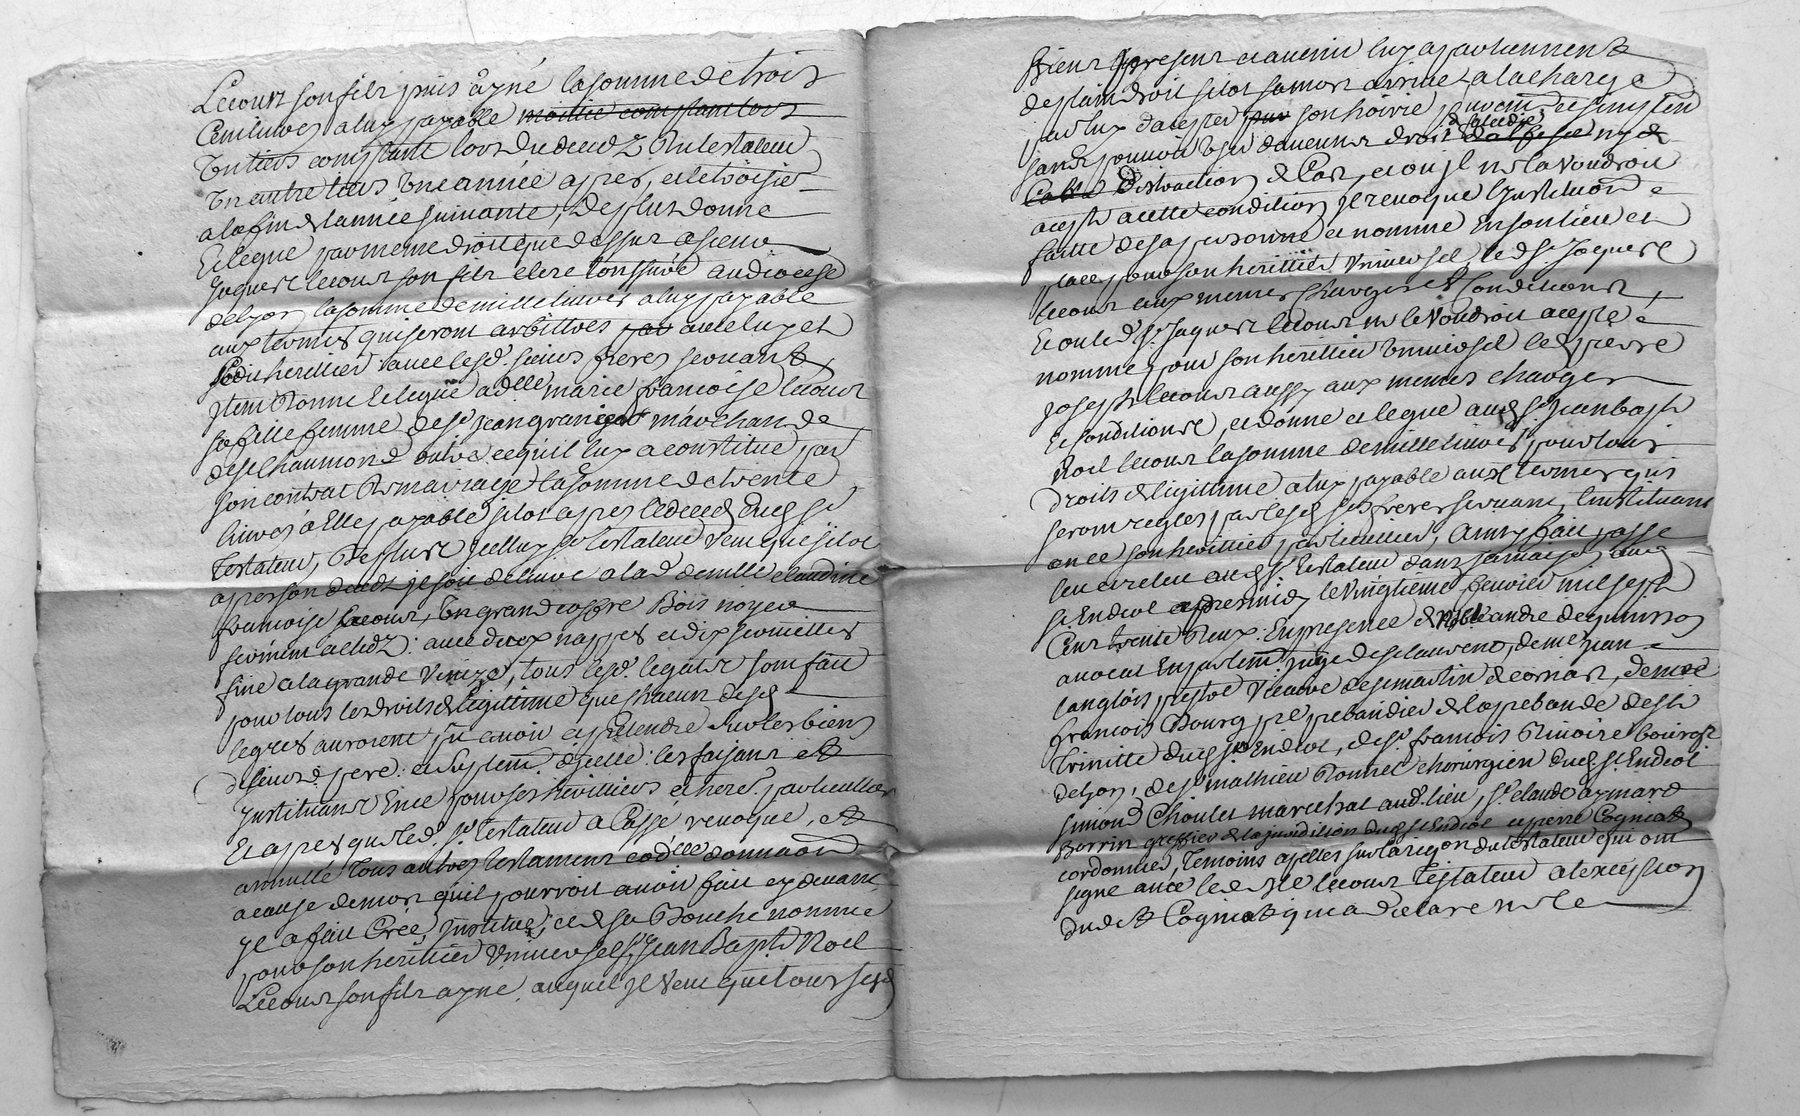 Lecour son fils puis ayné la somme de trois
Cent livres a luy payable moitié comptant lors
un tiers comptant lors du deced du testateur
un autre tiers une année apres, et le troisie
a la fin de lannée suivante, de plus donne
Et legue par meme droit que dessus a sieur
Jaques lecour son fils clerc tonsuré au diocese
de lyon la somme de mille livres a luy payable
aux termes qui seront arbittres par avec luy et
son herittier avec lesd. sieurs freres servants
Item donne Et legue a delle marie francoise lecour
sa fille femme de sr jean granjon marchand de
de st chaumond outre ce quil luy a constitué par
son contrat de mariage la somme de trente
livres a Elle payable sitot apres le deced dud sr
testateur, De plus icelluy sr testateur veut que sitot
apres son deced il soit delivré a lad demlle claudine
francoise lecour, un grand coffre Bois noyer
fermant a cled. avec deux nappes et dix serviettes
fine a la grande Venize, tous lesd. legats sont fait
pour tous les droits de legitime que chacun desd
legués auroient pû avoir et pretendre sur les biens
dud sieur pere et suplem. dicelle les faisant et
Instituant En ce pour ses herittiers et hered. particulliers
Et apres que led. sr testateur a Cassé revoqué, et
annullé tous autres testaments codicille donnaon
a cause de mort quil pourroit avoir fait cy devant,
Il a fait Créé, Institué, et de sa Bouche nommé
pour son herittier Universel sr Jean Bapte Noel
Lecour son fils ayné auquel Il veut que tous sesd
Biens present et avenir luy apartiennent
de plain droit sitot sa mort arrivée a la charge
par luy daccepter pur son hoirie purement et simplem
sans pouvoir user daucuns droits de falcidie ny de
distraction de Cas, et ou Il ne la voudroit
accepter a cette condition Il revoque linstitution
faitte de sa personne et nomme En son lieu et
place pour son herittier Universel led sr Jaques
lecour aux memes charges et Conditions,
Et ou led. sr Jaques lecour ne le voudroit accepter
nomme pour son herittier universel led pierre
joseph lecour aussy aux memes charges
Et conditions, et donne et legue aud sr jean bapte
Noel lecour la somme de mille livres pour tous
droits de legittime a luy payable aux termes qui
seront regles par lesd ses freres servants, linstituant
en ce son herittier particulier, Ainsy fait passé
leu et releu aud sr testateur dans sa maison aud
st Endeol apres midy le vingtieme fevrier mil sept
Cent trente deux. En presence de noble andre degumison
avocat En parlem. juge de st laurent, de me jean
langlois prestre vicaire de st martin de cornas, de me
francois Bourg pre prebandier de la prebande de ste
Trinitte dud st Endeol, de sr francois Rivoire bourgs
de lyon, de sr mathieu Donnet chirurgien dud st Endeol
simond Choulet mareschal aud. lieu, sr claude aymard
Perrin greffier de la juridiction dud st Endeol et pierre Cogniat
cordonnier, Temoins apelles sur la requon du testateur qui ont
signé avec led sr lecour Testateur a lexception
dudit Cogniat qui a declaré ne le